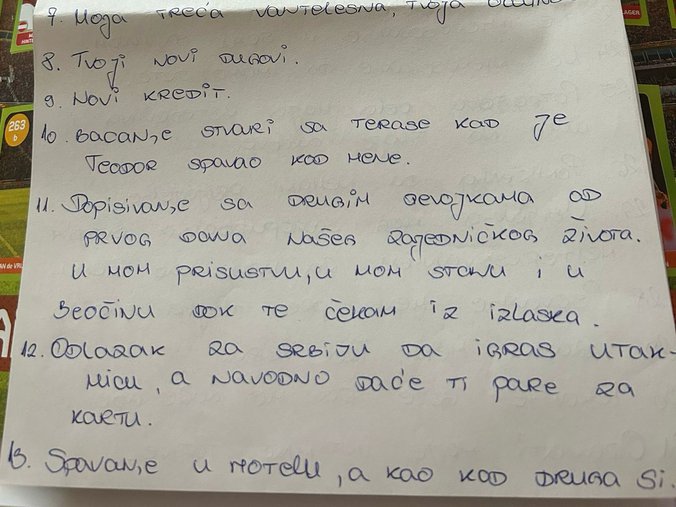 7. MOJA TREĆA VANTELESNA, TVOJA
8. TVOJI NOVI DUGOVI.
9. NOVI KREDIT.
10. BACANJE STVARI SA TERASE KAD JE
TEODOR SPAVAO KOD MENE.
11. DOPISIVANJE SA DRUGIM DEVOJKAMA OD
PRVOG DANA NAŠEG ZAJEDNIČKOG ŽIVOTA.
U MOM PRISUSTVU, U MOM STANU I U
BEOČINU DOK TE ČEKAM IZ IZLASKA.
12. ODLAZAK ZA SRBIJU DA IGRAŠ UTAK-
MICU, A NAVODNO DAĆE TI PARE ZA
KARTU.
13. SPAVANJE U HOTELU, A KAO KOD DRUGA SI.
263
b